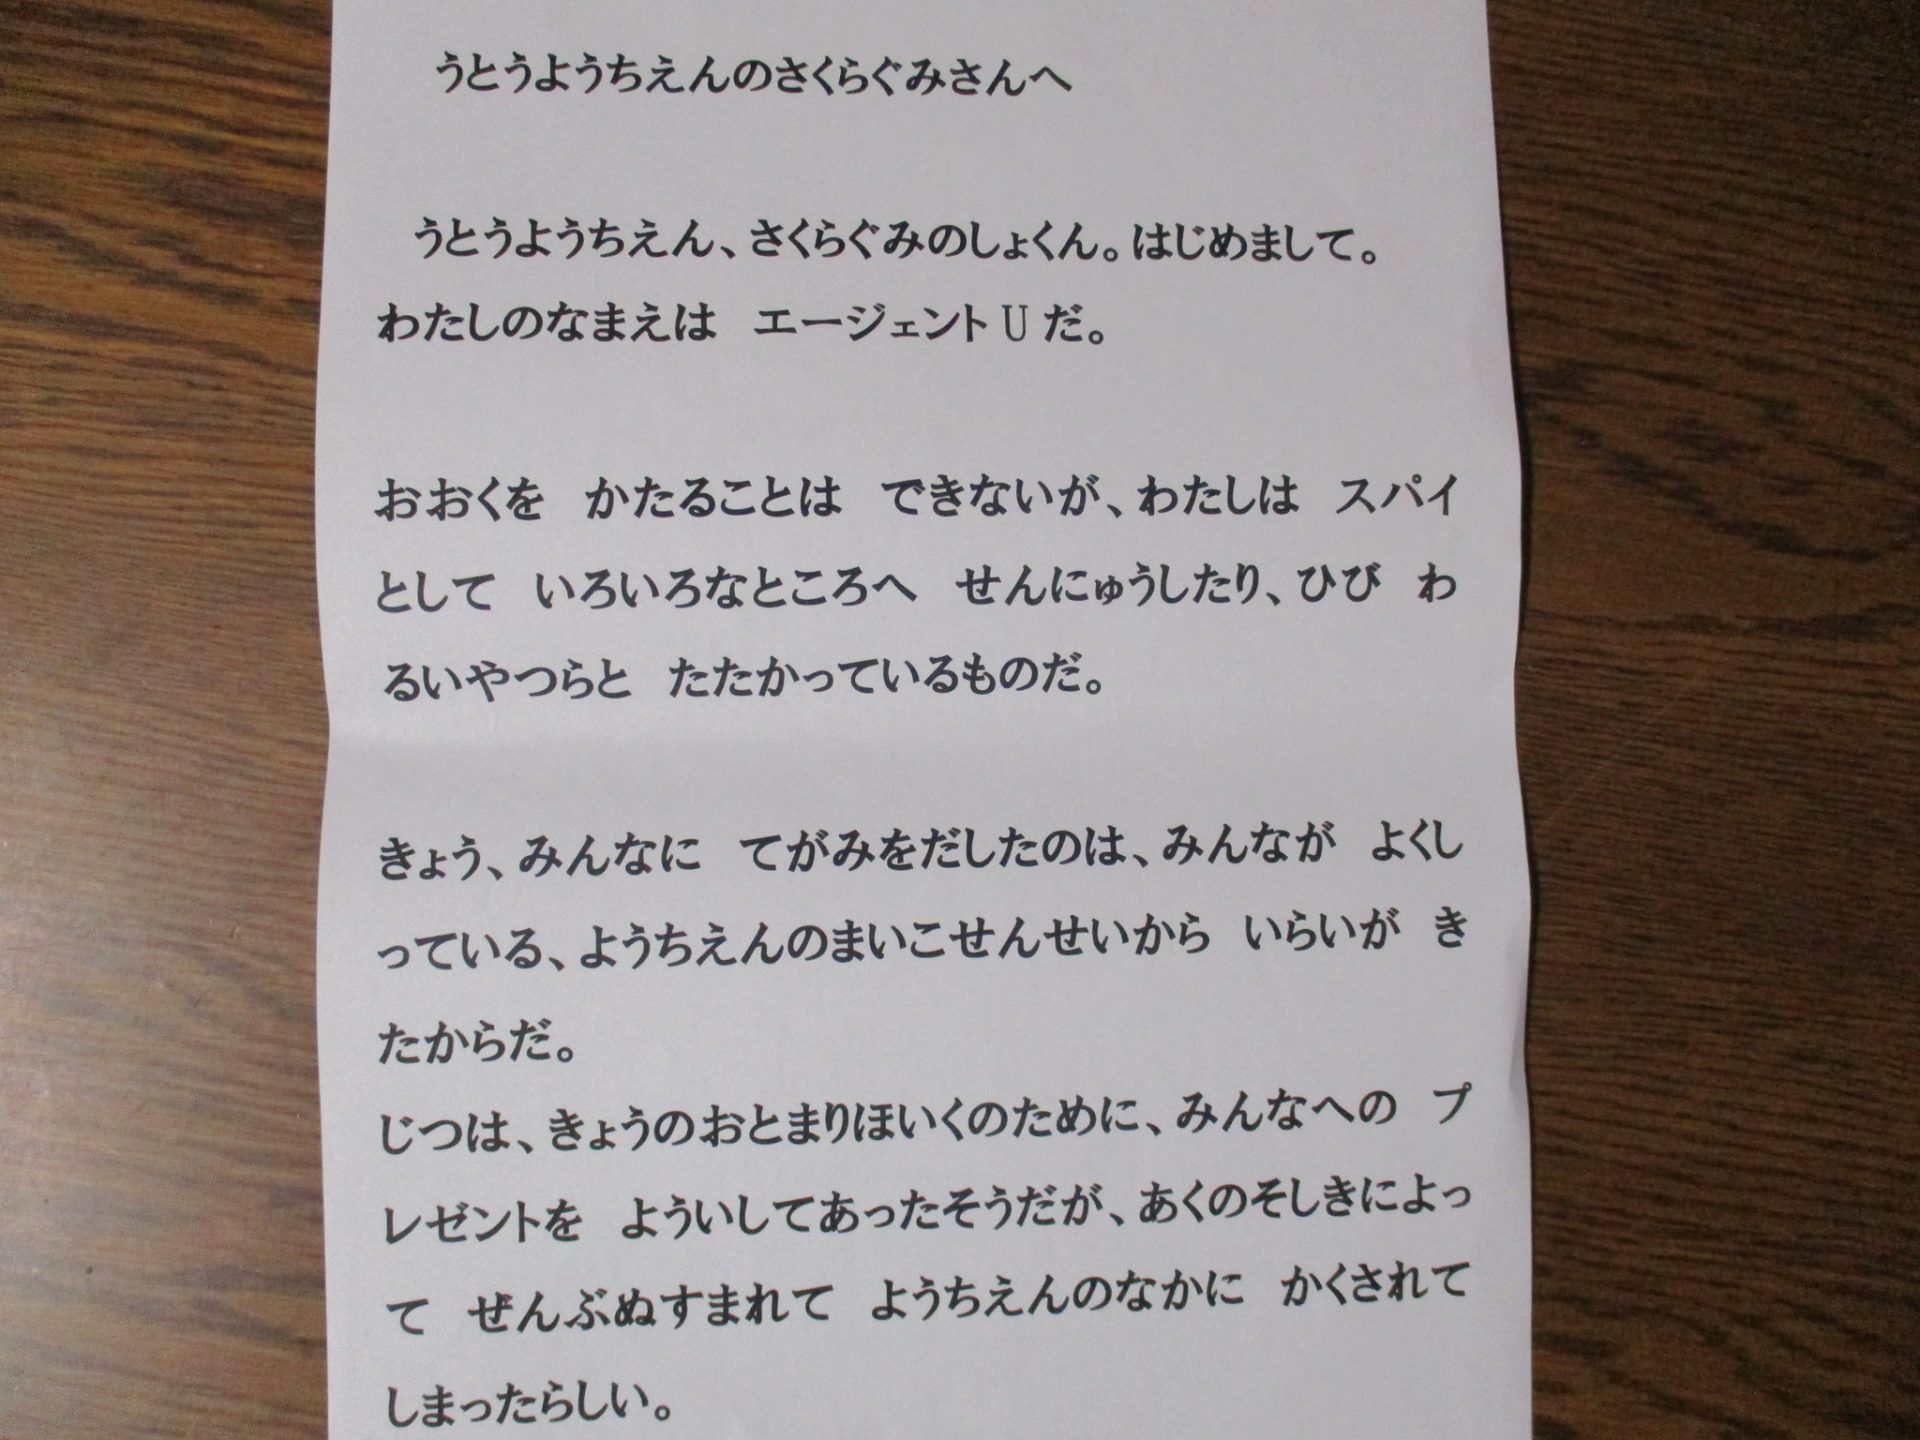 うとうようちえんのさくらぐみさんへ
うとうようちえん、さくらぐみのしょくん。はじめまして。
わたしのなまえは　エージェントUだ。
おおくを　かたることは　できないが、わたしは　スパイ
として　いろいろなところへ　せんにゅうしたり、ひび　わ
るいやつらと　たたかっているものだ。
きょう、みんなに　てがみをだしたのは、みんなが　よくし
っている、ようちえんのまいこせんせいから　いらいが　き
たからだ。
じつは、きょうのおとまりほいくのために、みんなへの　プ
レゼントを　よういしてあったそうだが、あくのそしきによっ
て　ぜんぶぬすまれて　ようちえんのなかに　かくされて
しまったらしい。